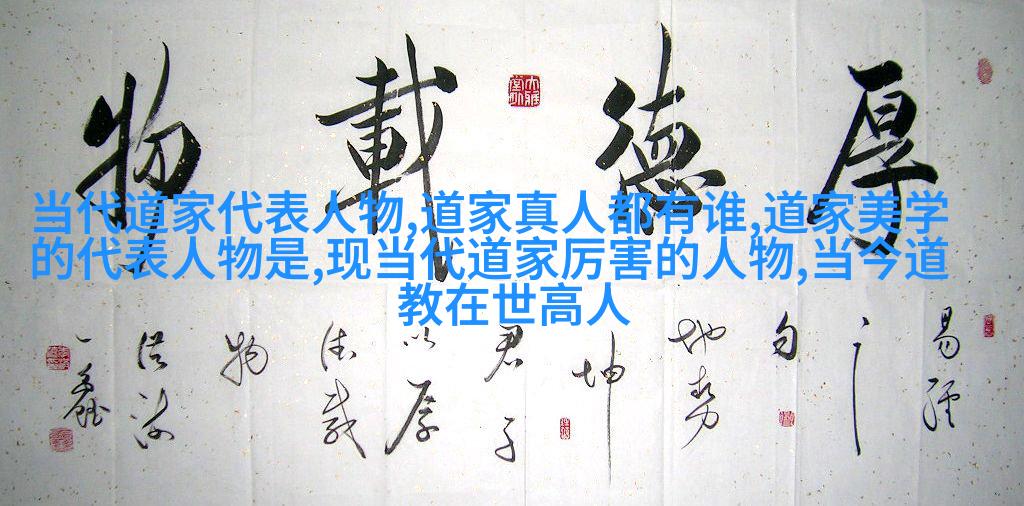 厚德載物
当代道家代表人物,道家真人都有谁,道家美学
的代表人物是,现当代道家厉害的人物,当今道
教在世高人
易經
之
句
地勢
坤
君子
以厚
德載
物